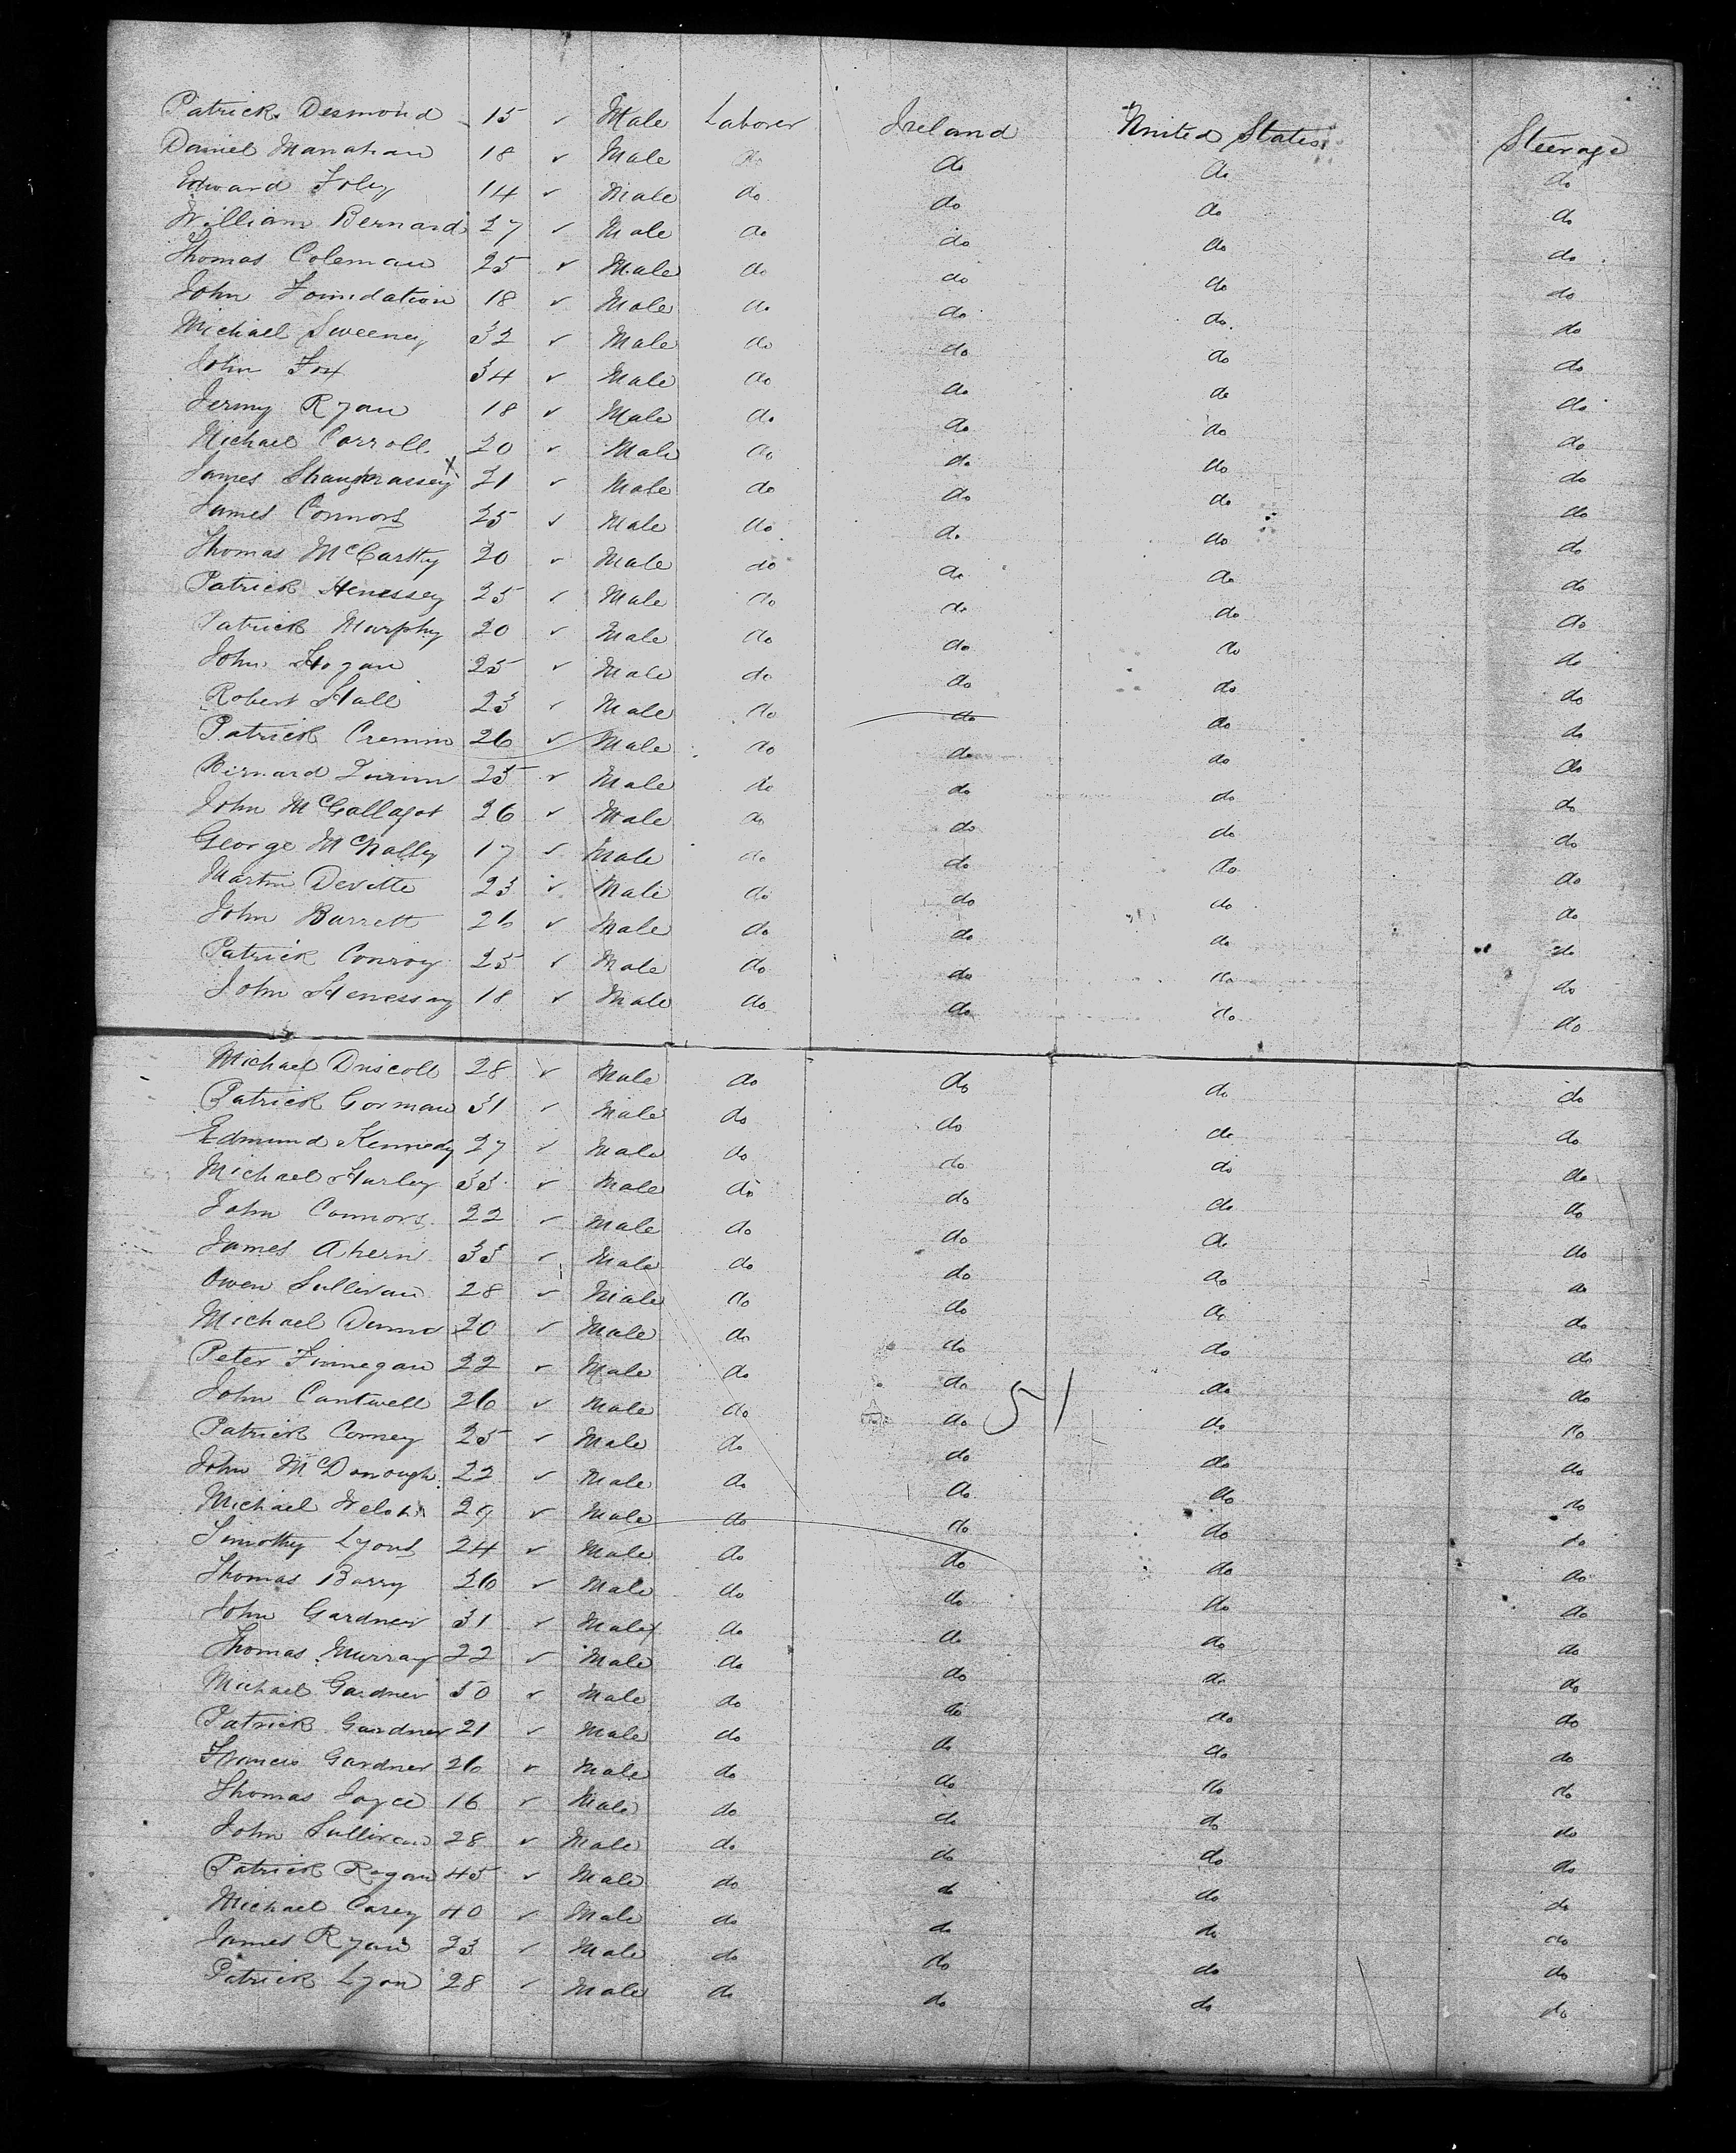 Patrick Desmond 15 ✓ Male Laborer Ireland United States Steerage
Daniel Manahan 18 ✓ Male do do do do
Edward Foley 14 ✓ Male do do do do
William Bernard 27 ✓ Male do do do do
Thomas Coleman 25 ✓ Male do do do do
John Foundation 18 ✓ Male do do do do
Michael Sweeney 32 ✓ Male do do do do
John Fox 34 ✓ Male do do do do
Jermy Ryan 18 ✓ Male do do do do
Michael Carroll 20 ✓ Male do do do do
James Shaughnassey x 21 ✓ Male do do do do
James Connors 25 ✓ Male do do do do
Thomas McCartty 20 ✓ Male do do do do
Patrick Henessey 25 ✓ Male do do do do
Patrick Murphy 20 ✓ Male do do do do
John Hogan 25 ✓ Male do do do do
Robert Hall 23 ✓ Male do do do do
Patrick Cremin 26 ✓ Male do do do do
Bernard 25 ✓ Male do do do do
John McGallagot 26 ✓ Male do do do do
George McNally 17 ✓ Male do do do do
Martin Devitte 23 ✓ Male do do do do
John Barrett 26 ✓ Male do do do do
Patrick Conroy 25 ✓ Male do do do do
John Henessay 18 ✓ Male do do do do
Michael Driscoll 28 ✓ Male do do do do
Patrick Gorman 31 ✓ Male do do do do
Edmund Kennedy 27 ✓ Male do do do do
Michael Hurley 33 ✓ Male do do do do
John Connors 22 ✓ Male do do do do
James Ahern 35 ✓ Male do do do do
Owen Sullivan 28 ✓ Male do do do do
Michael Dunn 20 ✓ Male do do do do
Peter Finnegan 22 ✓ Male do do do do
John Cantwell 26 ✓ Male do do 51 do do
Patrick Comey 25 ✓ Male do do do do
John McDonough 22 ✓ Male do do do do
Michael Welsh 29 ✓ Male do do do do
Timothy Lyons 24 ✓ Male do do do do
Thomas Barry 26 ✓ Male do do do do
John Gardner 31 ✓ Male do do do do
Thomas Murray 22 ✓ Male do do do do
Michael Gardner 50 ✓ Male do do do do
Patrick Gardner 21 ✓ Male do do do do
Francis Gardner 26 ✓ Male do do do do
Thomas Joyce 16 ✓ Male do do do do
John Sullivan 28 ✓ Male do do do do
Patrick Regan 45 ✓ Male do do do do
Michael Carey 40 ✓ Male do do do do
James Ryan 23 ✓ Male do do do do
Patrick Lyon 28 ✓ Male do do do do